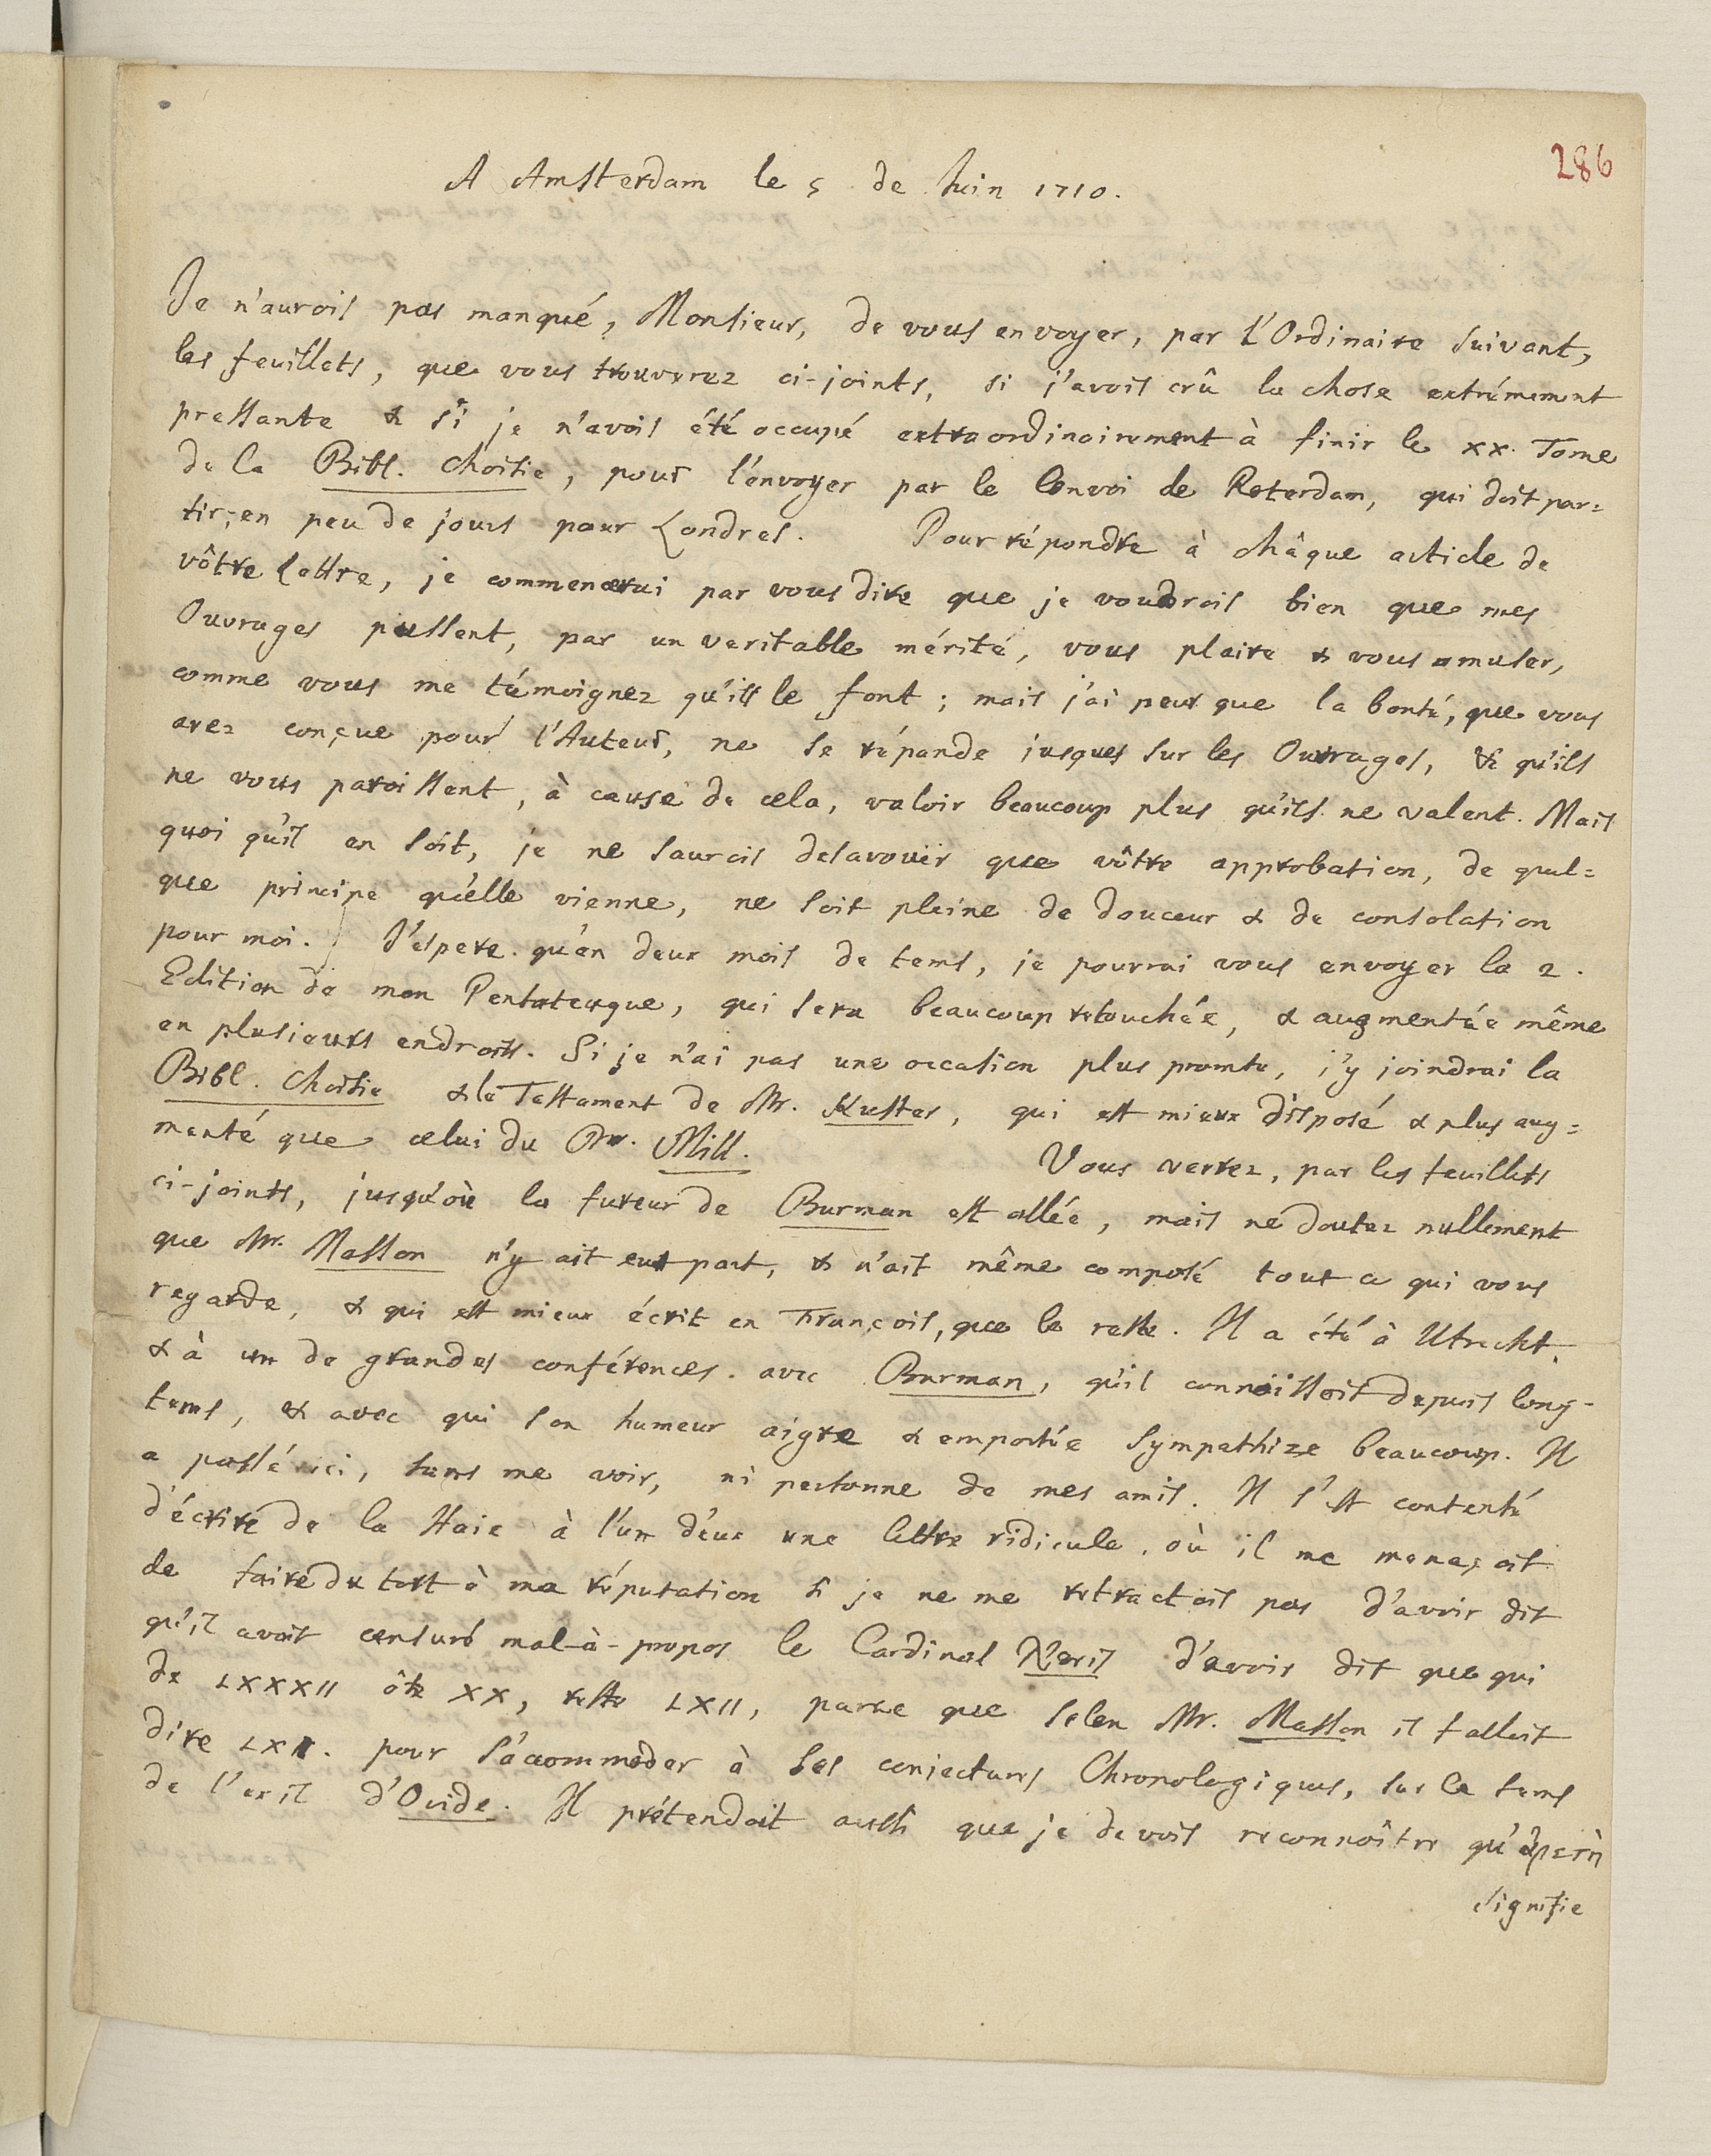 286
A Amsterdam le 5 de Juin 1710.
Je n'aurois pas manqué, Monsieur, de vous envoyer, par l'Ordinaire suivant,
les feuillets, que vous trouverez ci-joints, si j'avois crû la chose extrémement
pressante & si je n'avois été occupé extraordinairement à finir le XX. Tome
de la Bibl. Choisie, pour l'envoyer par le Convoi de Roterdam, qui doit par=
tir, en peu de jours pour Londres. Pour répondre à châque article de
vôtre Lettre, je commencerai par vous dire que je voudrois bien que mes
Ouvrages pussent, par un veritable mérite, vous plaire & vous amuser,
comme vous me témoignez qu'ils le font ; mais j'ai peur que la bonté, que vous
avez conçue pour l'Auteur, ne se répande jusques sur les Ouvrages, & qu'ils
ne vous paroissent, à cause de cela, valoir beaucoup plus qu'ils ne valent. Mais
quoi qu'il en soit, je ne saurois desavouër que vôtre approbation, de quel=
que principe qu'elle vienne, ne soit pleine de douceur & de consolation
pour moi. J'espere qu'en deux mois de tems, je pourrai vous envoyer la 2.
Edition de mon Pentateuque, qui sera beaucoup retouchée, & augmentée même
en plusieurs endroits. Si je n'ai pas une occasion plus promte, j'y joindrai la
Bibl. Choisie & le Testament de Mr. Kuster, qui est mieux disposé & plus aug=
menté que celui du Dr. Mill. Vous verrez, par les feuillets
ci-joints, jusqu'où la fureur de Burman est allée, mais ne doutez nullement
que Mr. Masson n'y ait eut part, & n'ait même composé tout ce qui vous
regarde, & qui est mieux écrit en François, que le reste. Il a été à Utrecht,
& à eu de grandes conférences avec Burman, qu'il connoissoit depuis long-
tems, & avec qui son humeur aigre & emportée sympathize beaucoup. Il
a passé ici, sans me voir, ni personne de mes amis. Il s'est contenté
d'écrire de la Haie à l'un d'eux une lettre ridicule, où il me menaçoit
de faire du tort à ma réputation si je ne me retractois pas d'avoir dit
qu'il avoit censuré mal-à-propos le Cardinal Noris d'avoir dit que qui
de LXXXII ôte XX, reste LXII, parce que selon Mr. Masson il falloit
dire LXI. pour s'accommoder à ses conjectures Chronologiques, sur le tems
de l'exil d'Ovide. Il prétendoit aussi que je devois reconnoître qu'ἀρετὴ
signifie